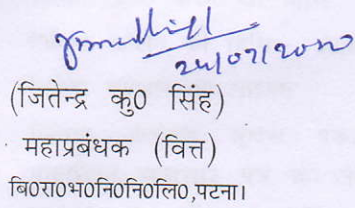 24/07/2020
(जितेन्द्र कु0 सिंह)
महाप्रबंधक (वित्त)
बि0रा0भ0नि0नि0लि0,पटना।